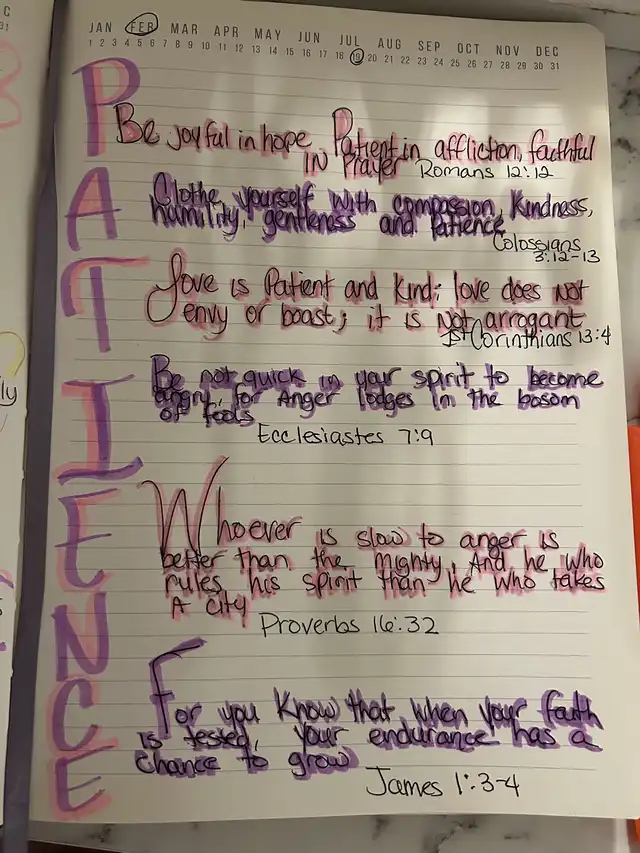 JAN FEB MAR APR MAY JUN JUL AUG SEP OCT NOV DEC
1 2 3 4 5 6 7 8 9 10 11 12 13 14 15 16 17 18 19 20 21 22 23 24 25 26 27 28 29 30 31
PATIENCE
Be joyful in hope, Patient in affliction, faithful
IN Prayer Romans 12:12
Clothe yourself with compassion, Kindness,
humility, gentleness and Patience
Colossians
3:12-13
Love is Patient and Kind; love does Not
envy or boast; it is Not arrogant
1st Corinthians 13:4
Be not quick in your spirit to become
angry, for Anger lodges in the bosom
of fools
Ecclesiastes 7:9
Whoever is slow to anger is
better than the mighty, And he who
rules his spirit than he who takes
A city
Proverbs 16:32
For you Know that when your faith
is tested, your endurance has a
chance to grow
James 1:3-4
C
31
ly